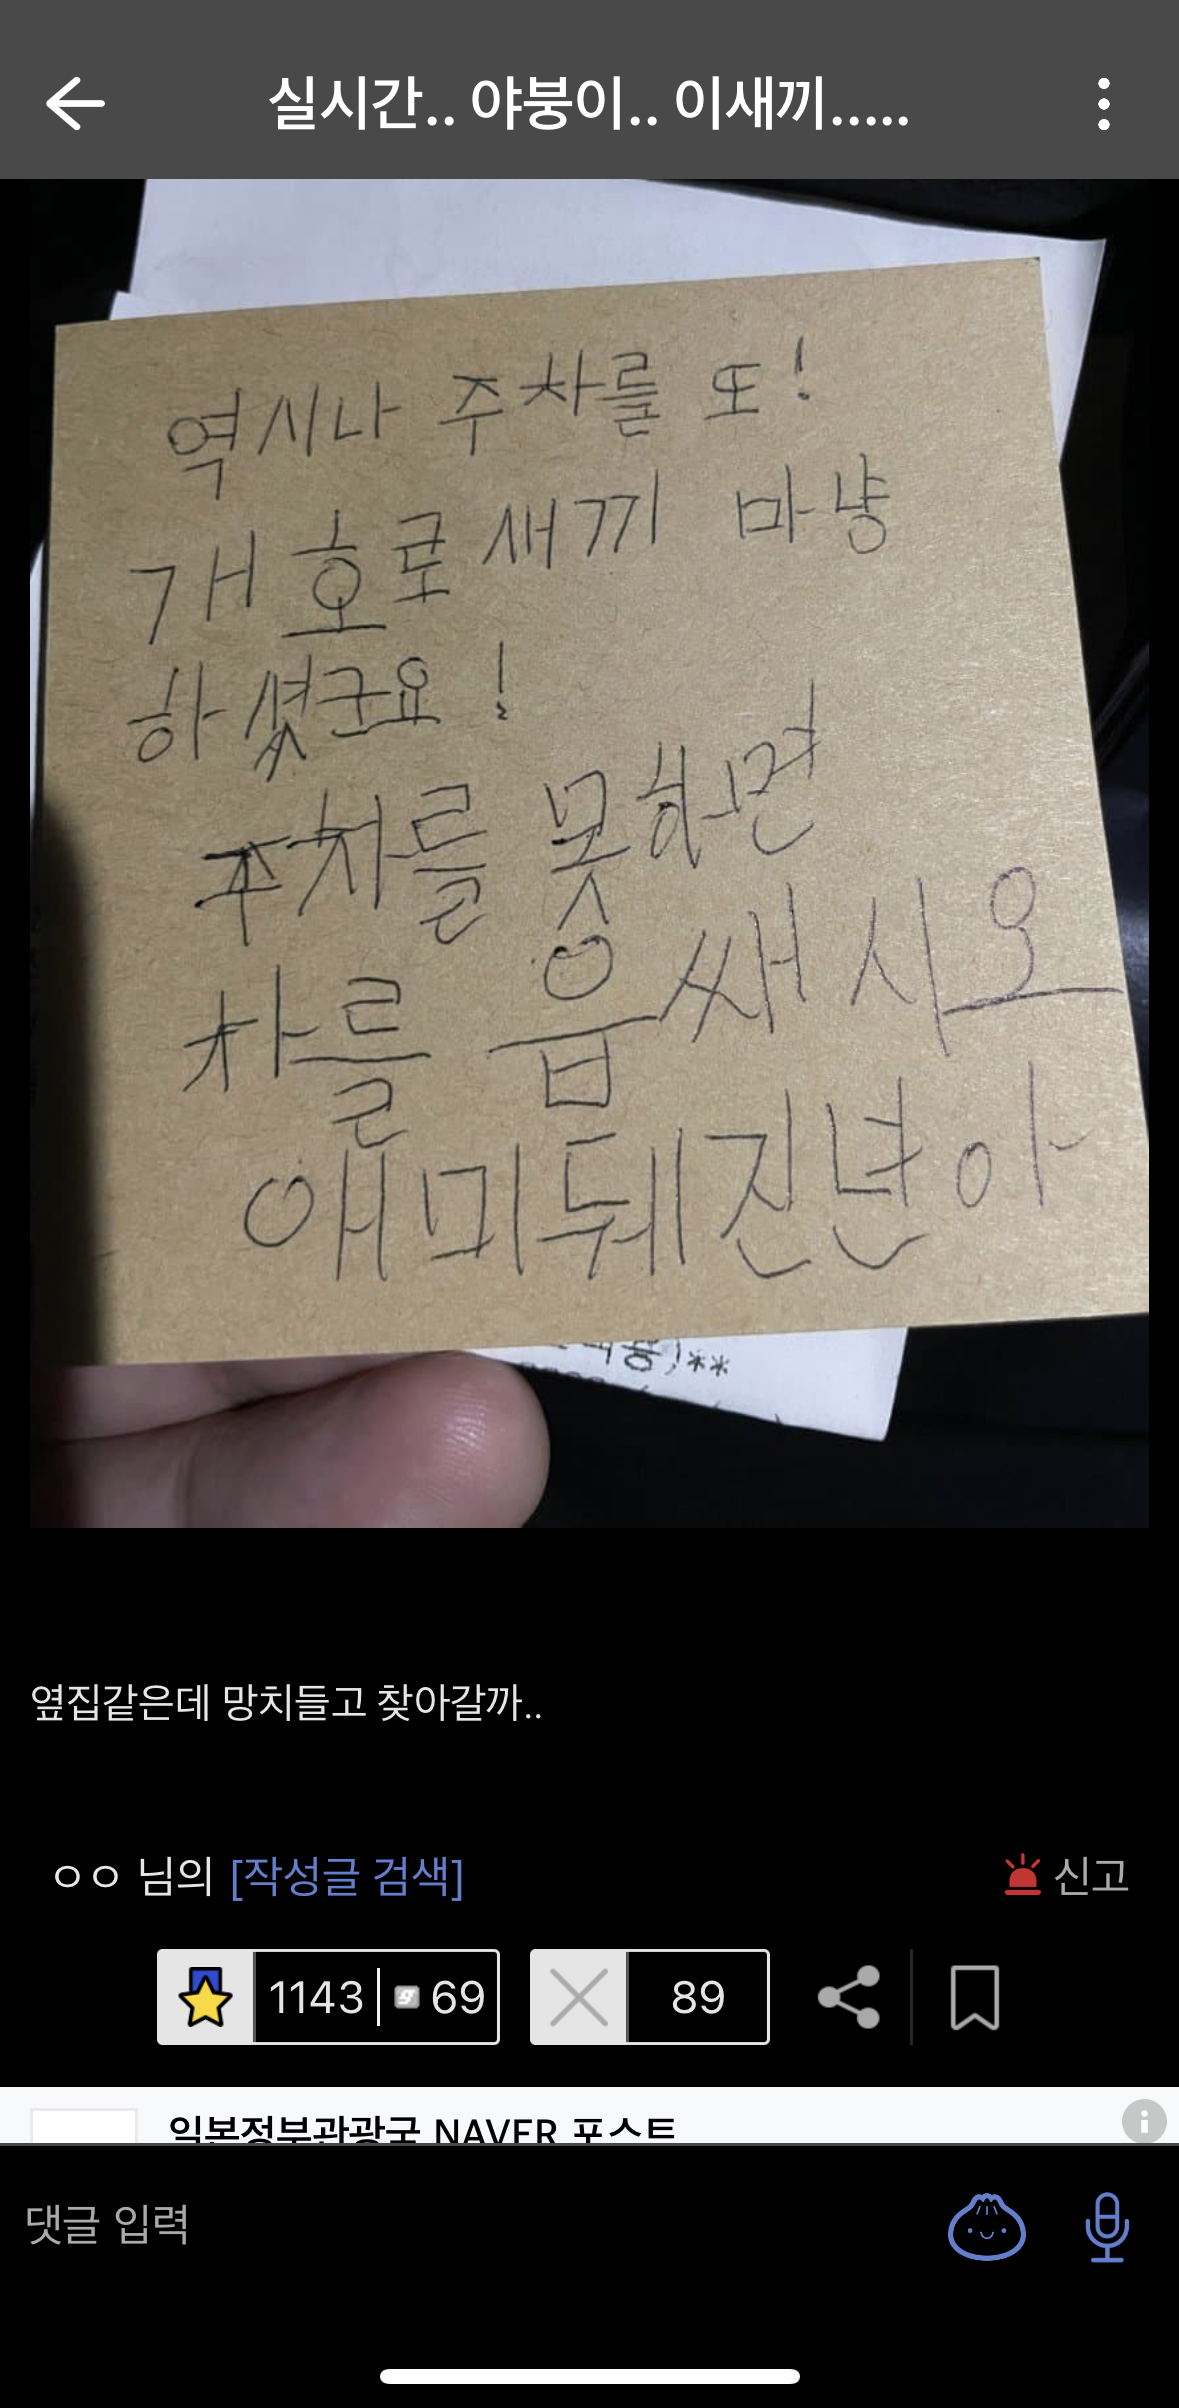 실시간.. 야붕이.. 이새끼.....
역시나 주차를 또!
개호로새끼 마냥
하셨군요!
주차를 못하면
차를 읍쌔시오
애미뒈진년아
옆집같은데 망치들고 찾아갈까..
ㅇㅇ 님의 [작성글 검색]
신고
1143 69
89
일본정부관광국 NAVER 포스트
댓글 입력